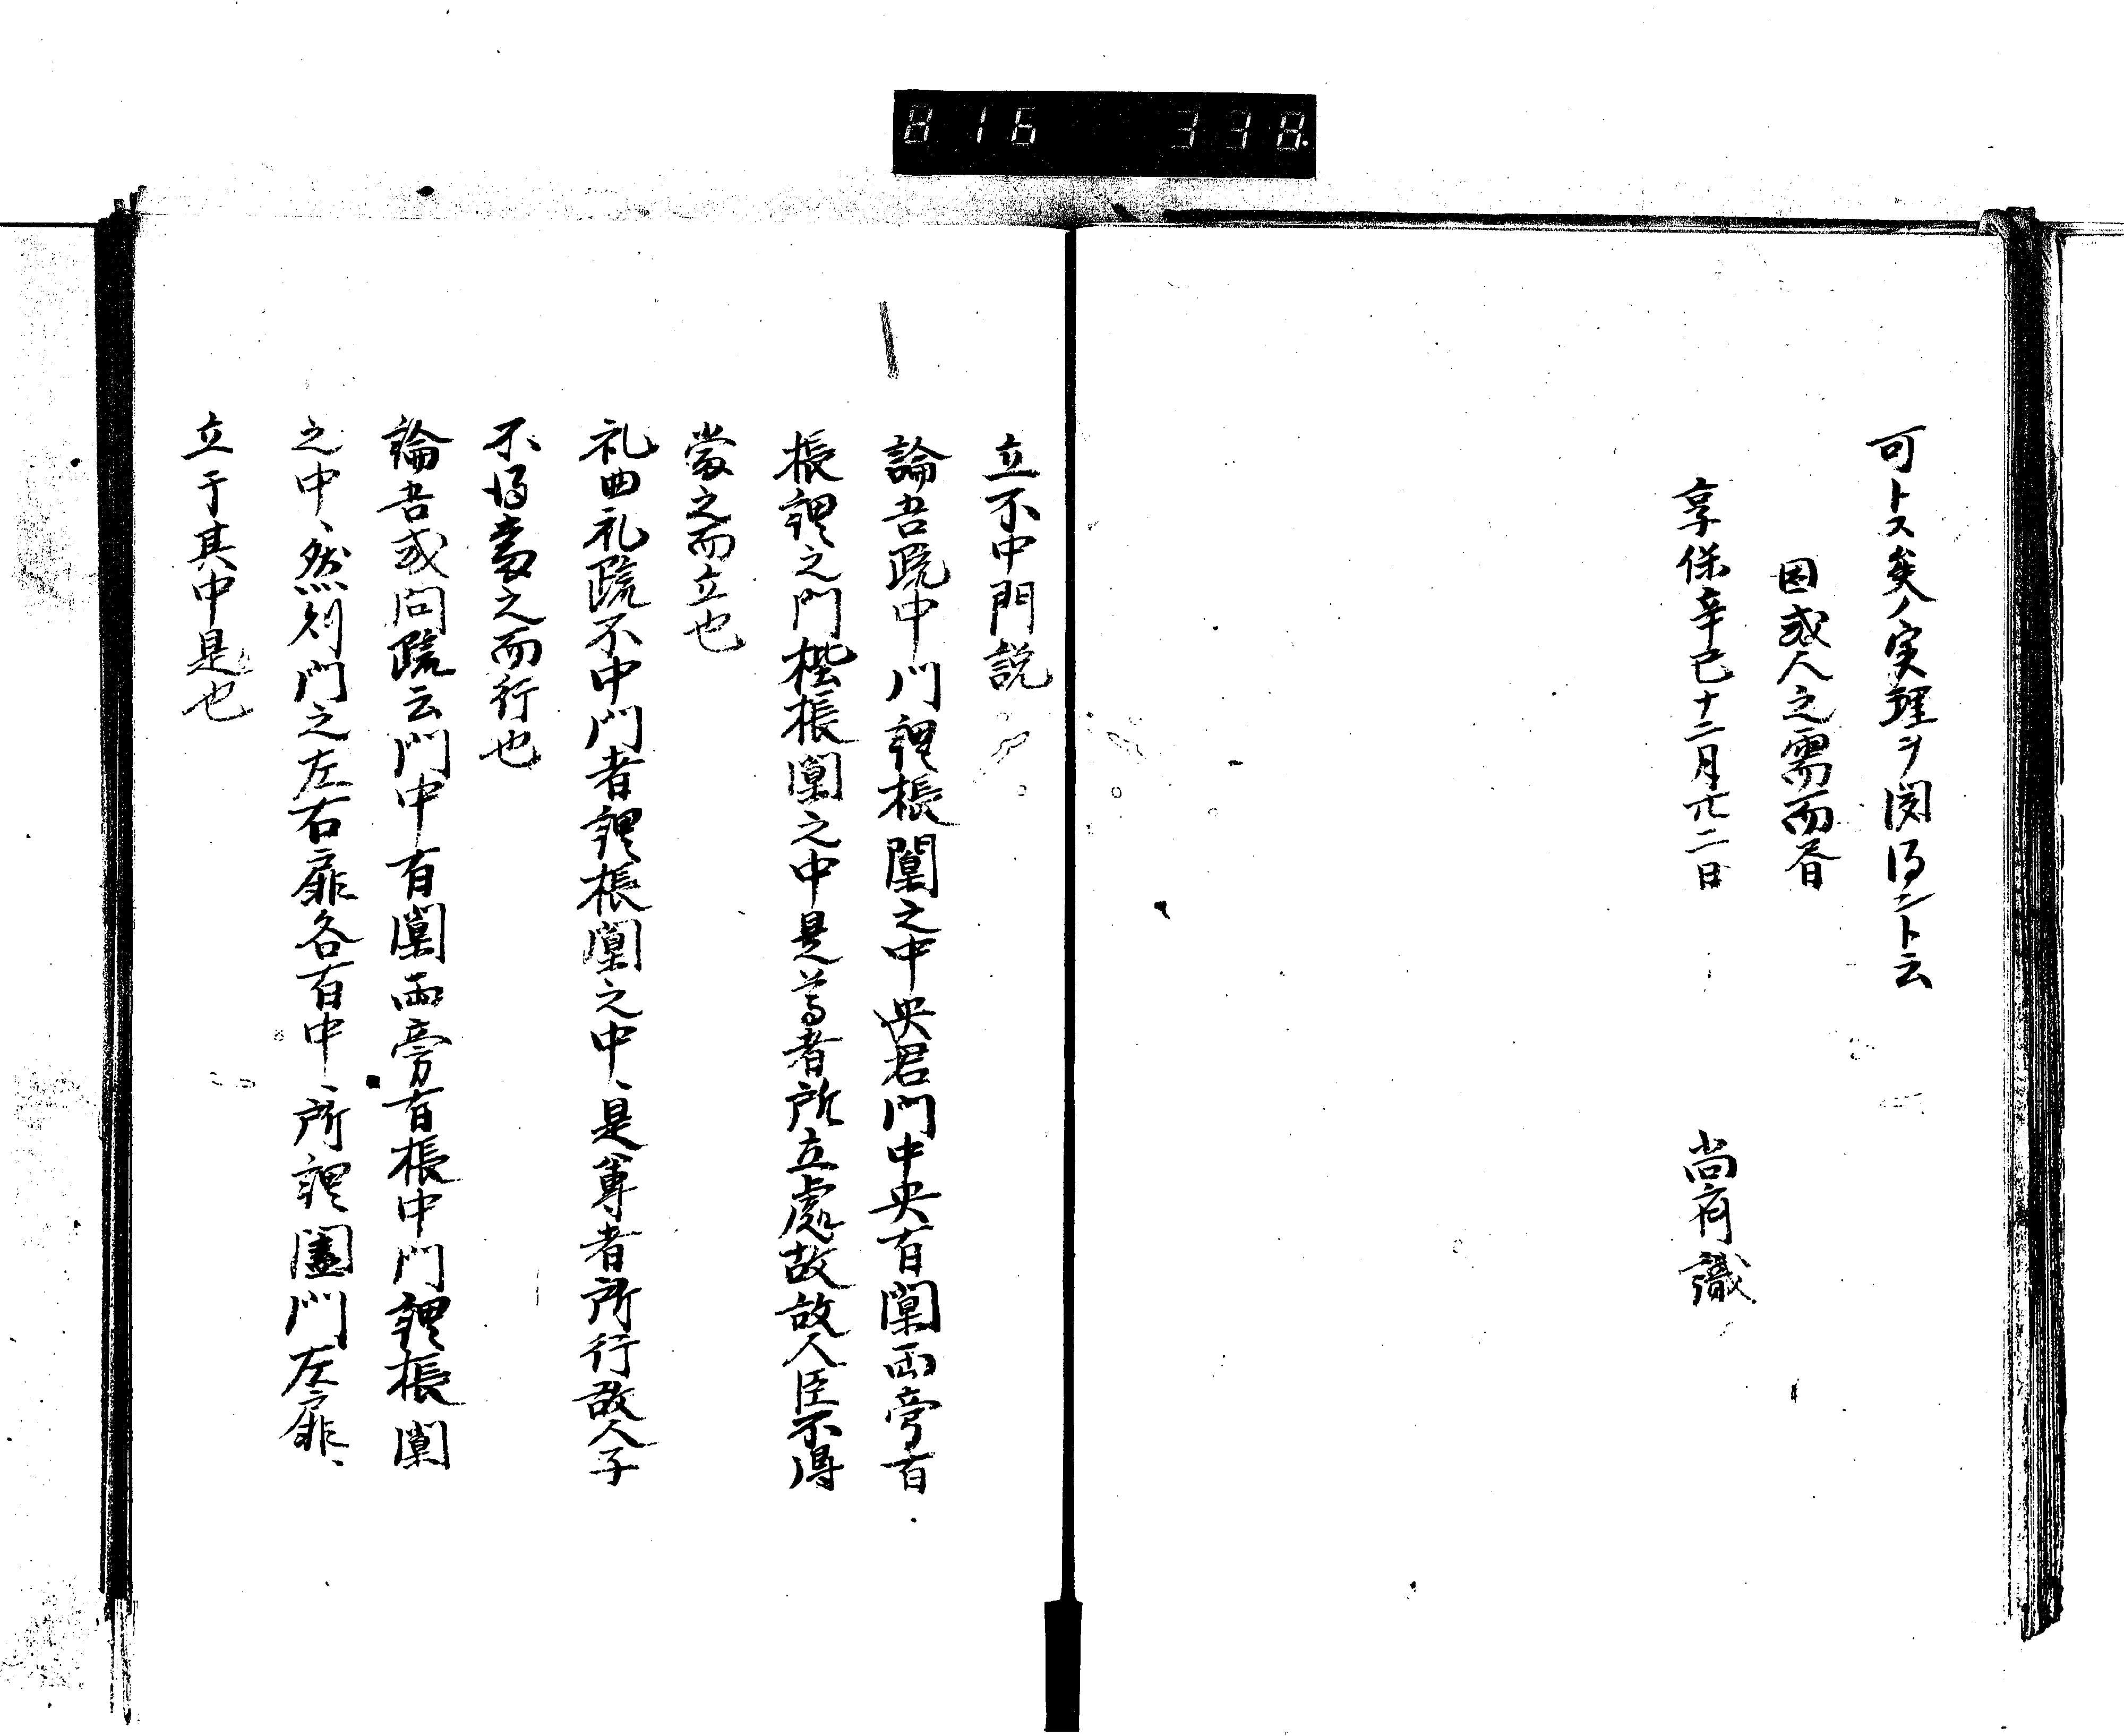 816 338
可トス矣ノ実理ヲ閲得ント云
因或人之需而、
享保辛巳十二月二日
尚 識
立不中門説
論吾疏中門謂棖闑之中央君門中央有闑両旁有
棖謂之門梐棖闑之中是尊者所立處故人臣不得
當之而立也
礼曲礼疏不中門者謂棖闑之中是尊者所行故人子
不得當之而行也
論吾或問疏云門中有闑両旁有棖中門謂棖闑
之中、然則門之左右扉各有中、所謂闔門左扉、
立于其中是也